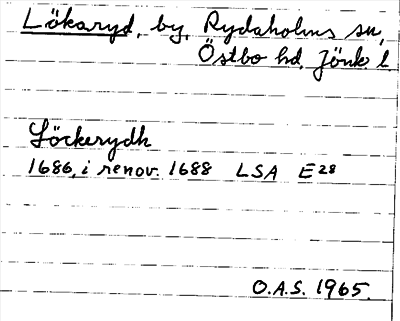 Lökaryd, by, Rydaholms sn,
Östbo hd, Jönk. l.
Löckerydh
1686, i renov. 1688 LSA E 28
O.A.S. 1965.